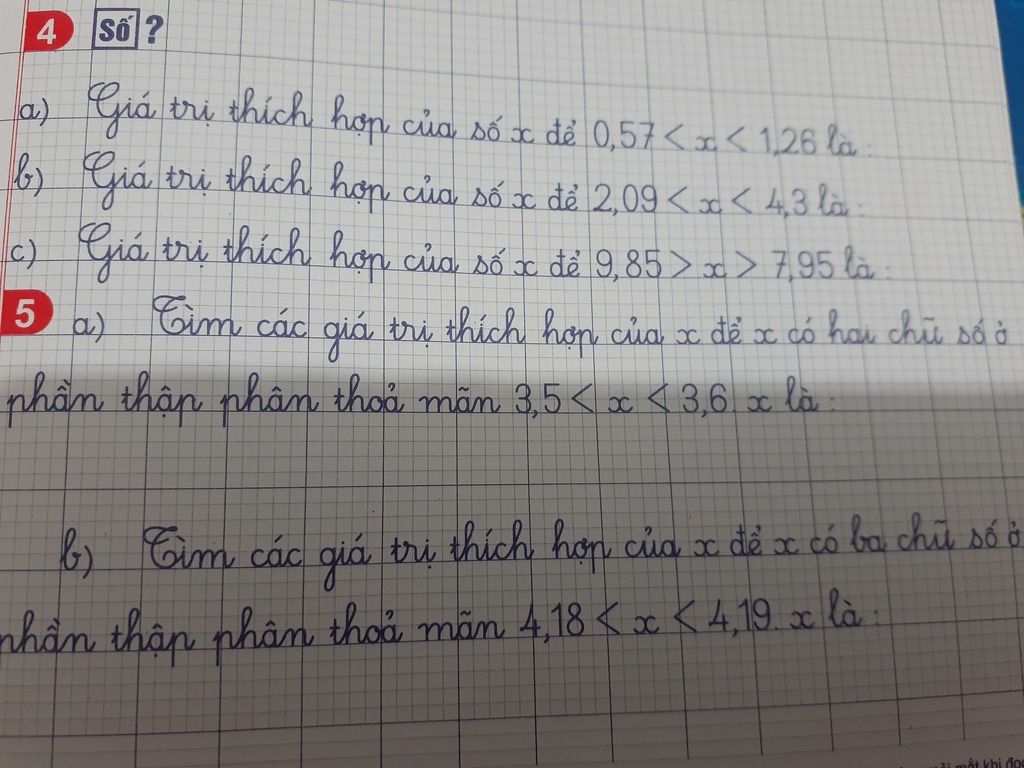 4 Số ?
a) Giá trị thích hợp của số x để 0,57 < x < 1,26 là:
b) Giá trị thích hợp của số x để 2,09 < x < 4,3 là:
c) Giá trị thích hợp của số x để 9,85 > x > 7,95 là:
5 a) Tìm các giá trị thích hợp của x để x có hai chữ số ở
phần thập phân thoả mãn 3,5 < x < 3,6 x là:
b) Tìm các giá trị thích hợp của x để x có ba chữ số ở
phần thập phân thoả mãn 4,18 < x < 4,19. x là:
mắt khi đọ